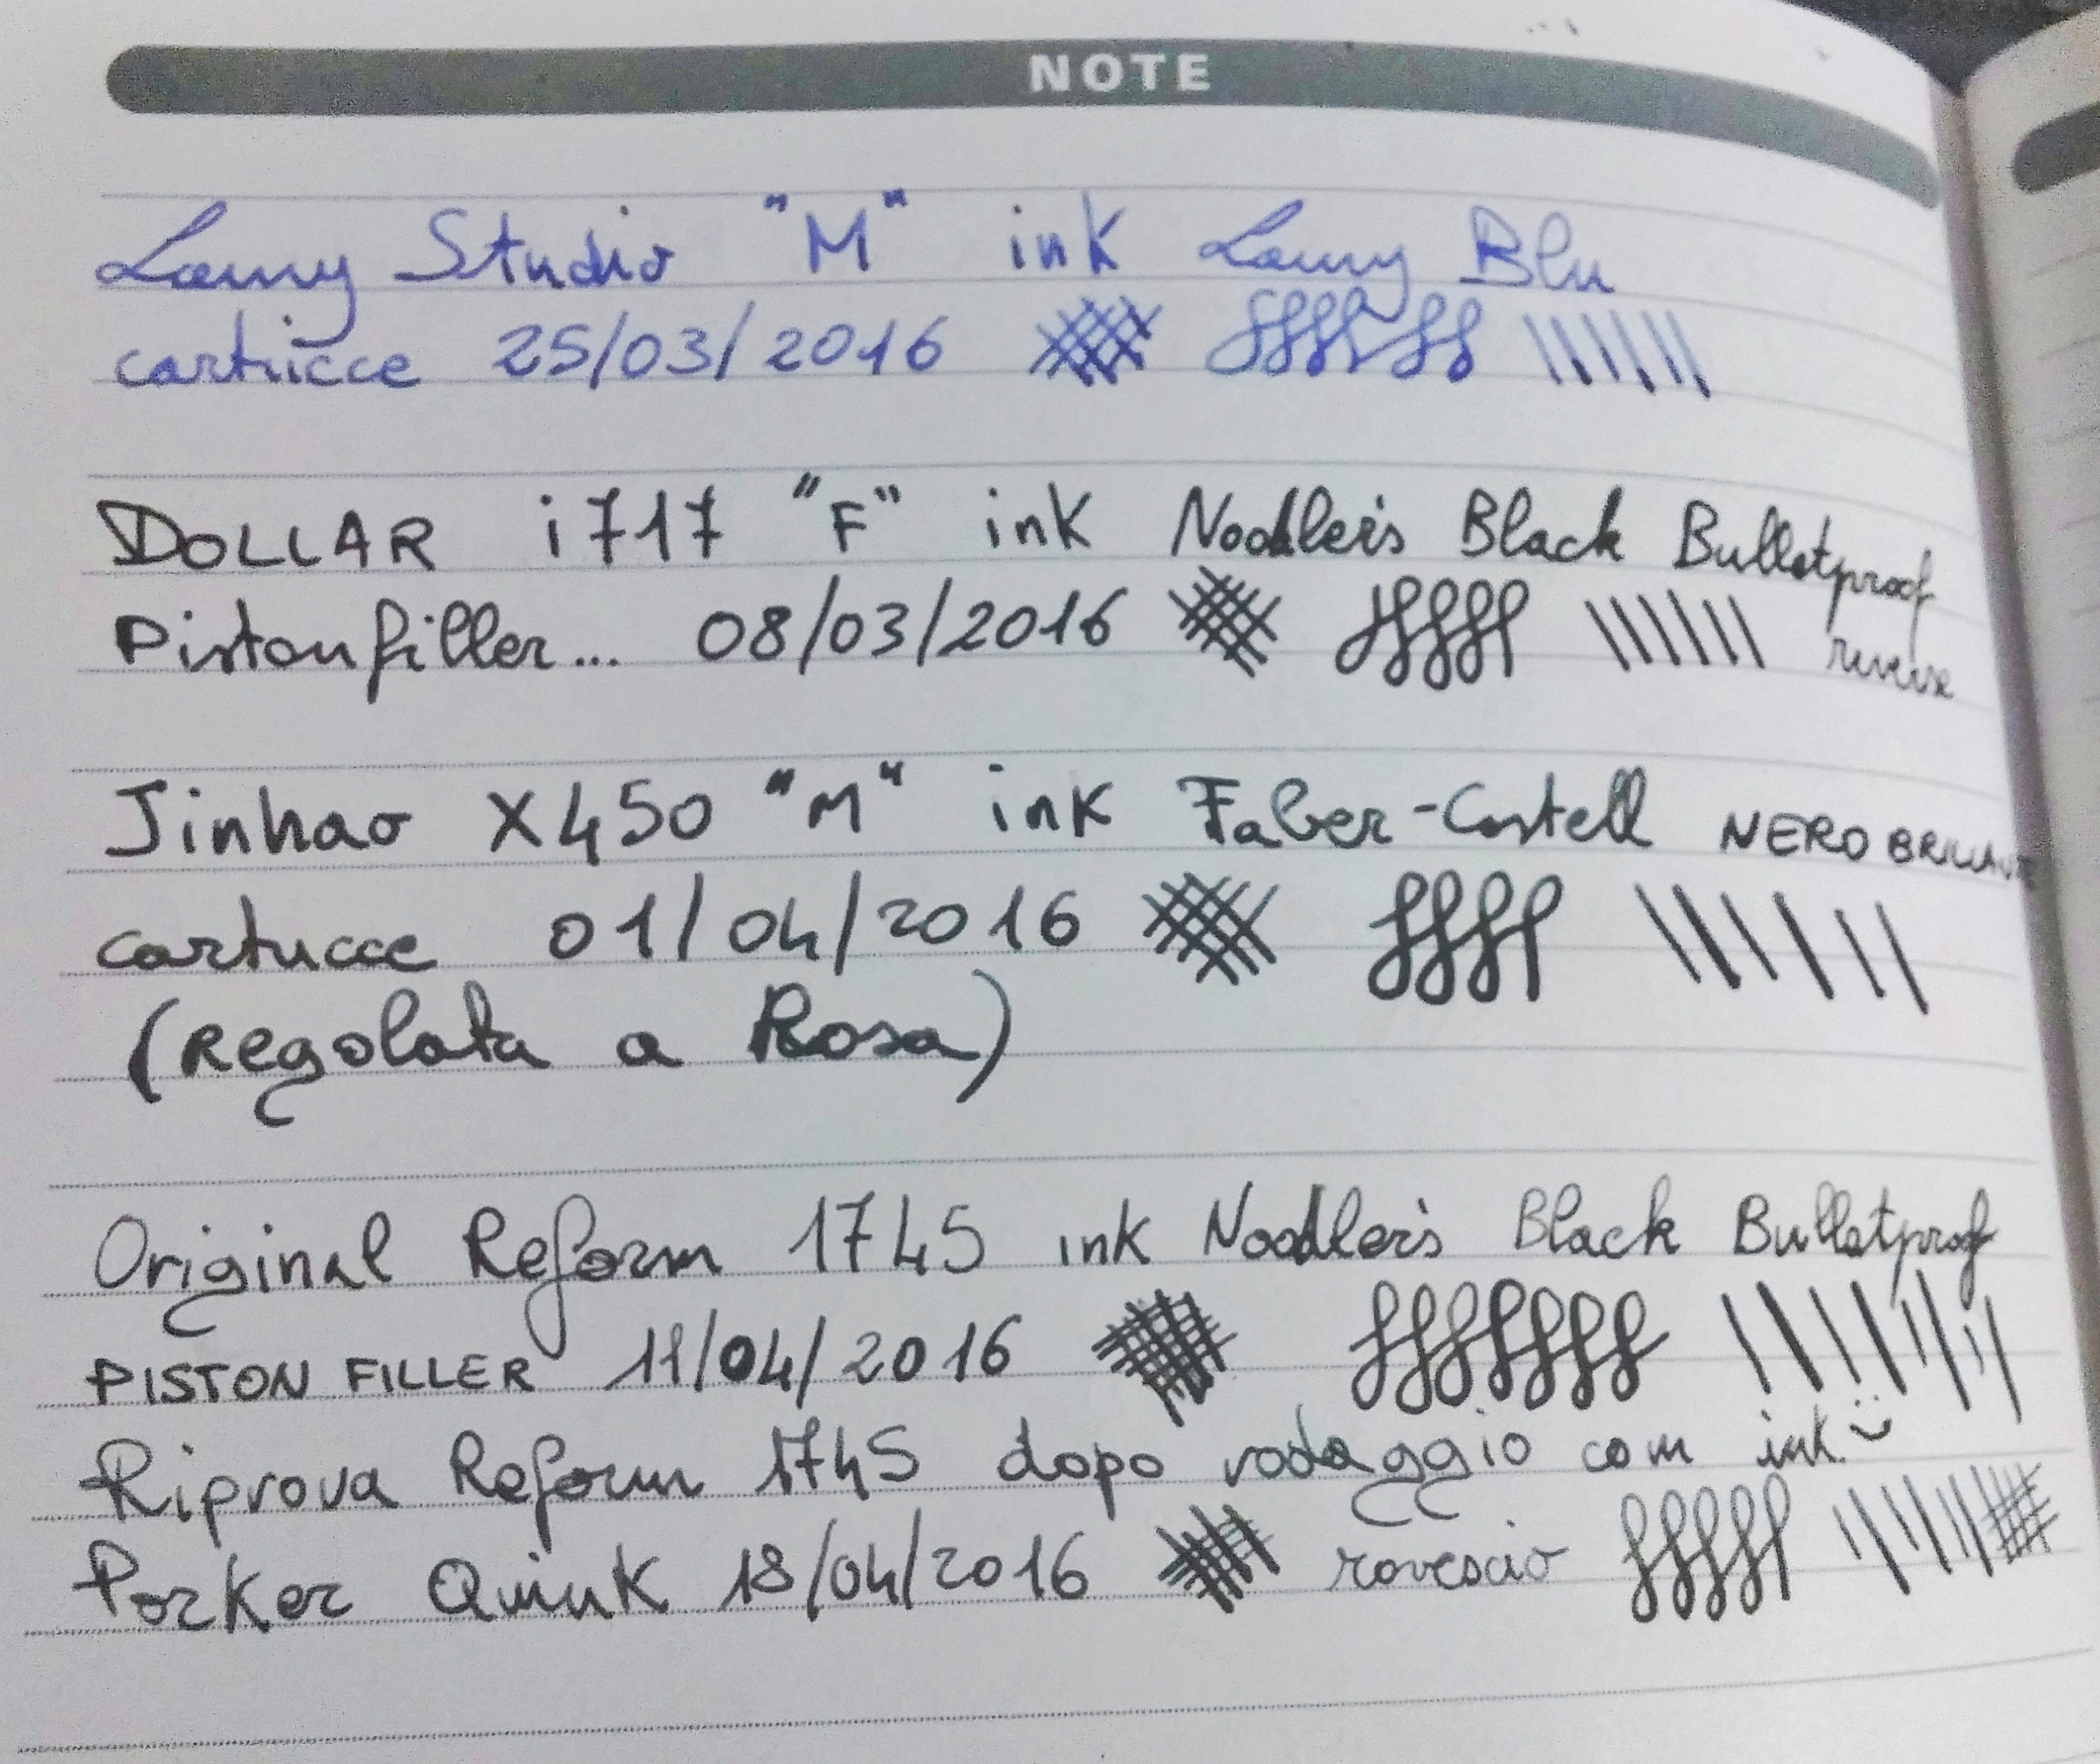 NOTE
Lamy Studio "M" ink Lamy Blu
cartucce 25/03/2016
DOLLAR i717 "F" ink Noodler's Black Bulletproof
Pistonfiller... 08/03/2016 reverse
Jinhao X450 "M" ink Faber-Castell NERO BRILLANTE
cartucce 01/04/2016
(Regolata a Rosa)
Original Reform 1745 ink Noodler's Black Bulletproof
PISTON FILLER 11/04/2016
Riprova Reform 1745 dopo rodaggio con ink :)
Parker Quink 18/04/2016 rovescio